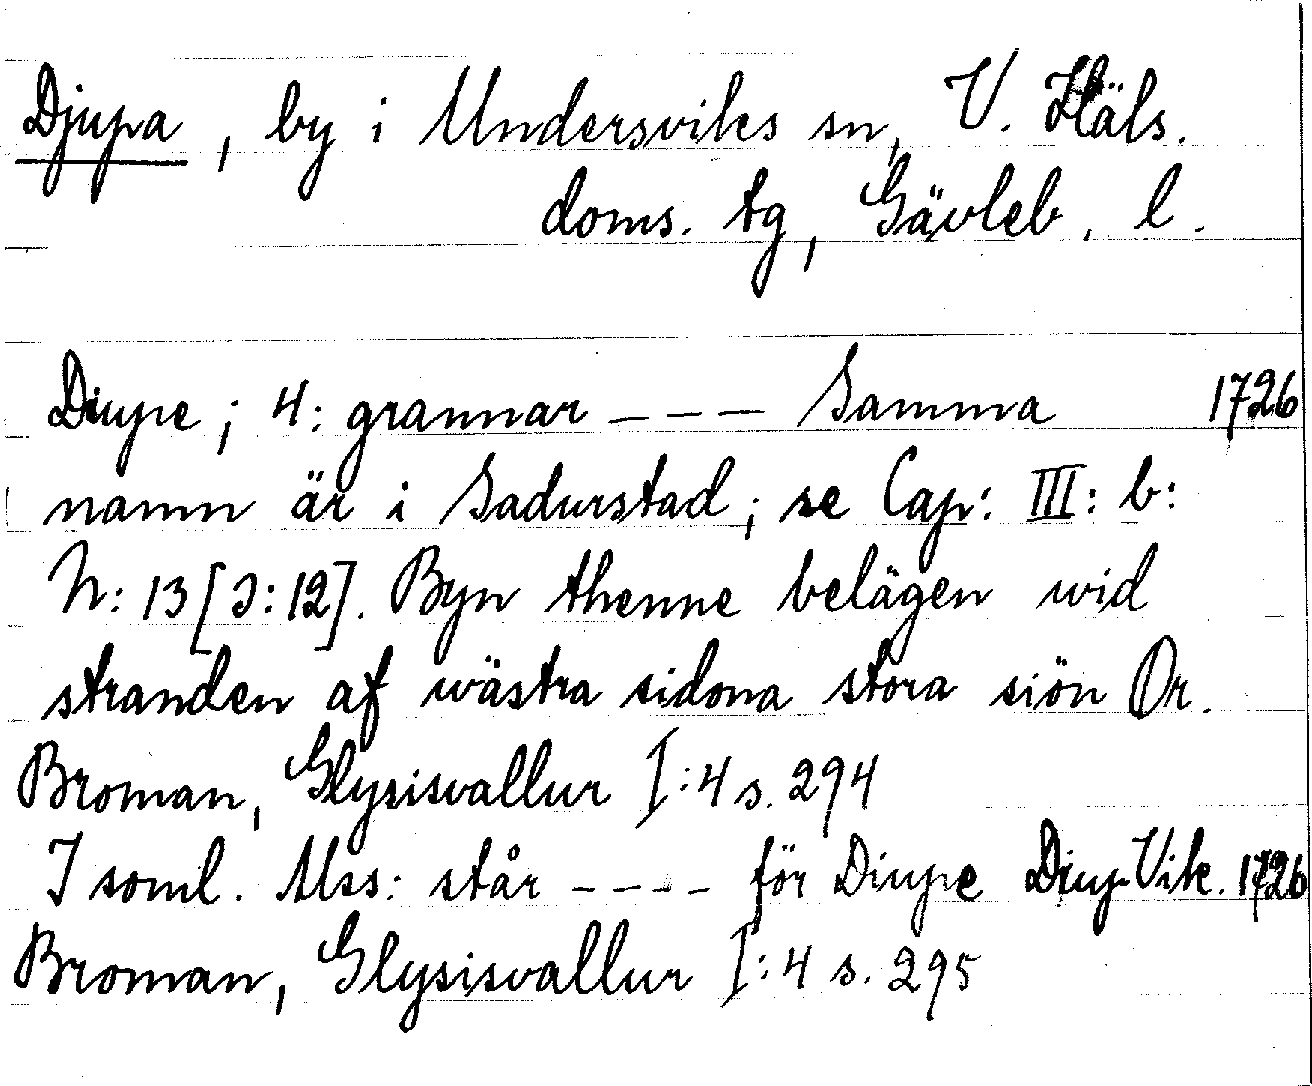 Djupa, by i Undersviks sn, V. Häls.
doms. tg, Gävleb. l.
Diupe; 4: grannar ---- Samma 1726
namn är i Sadurstad; se Cap: III: b:
N: 13 [ɔ: 12]. Byn thenne belägen wid
stranden af wästra sidona stora siön Or.
Broman, Glysisvallur I:4 s. 294
I soml. Mss: står ---- för Diupe Diup-Vik. 1726
Broman, Glysisvallur I:4 s. 295